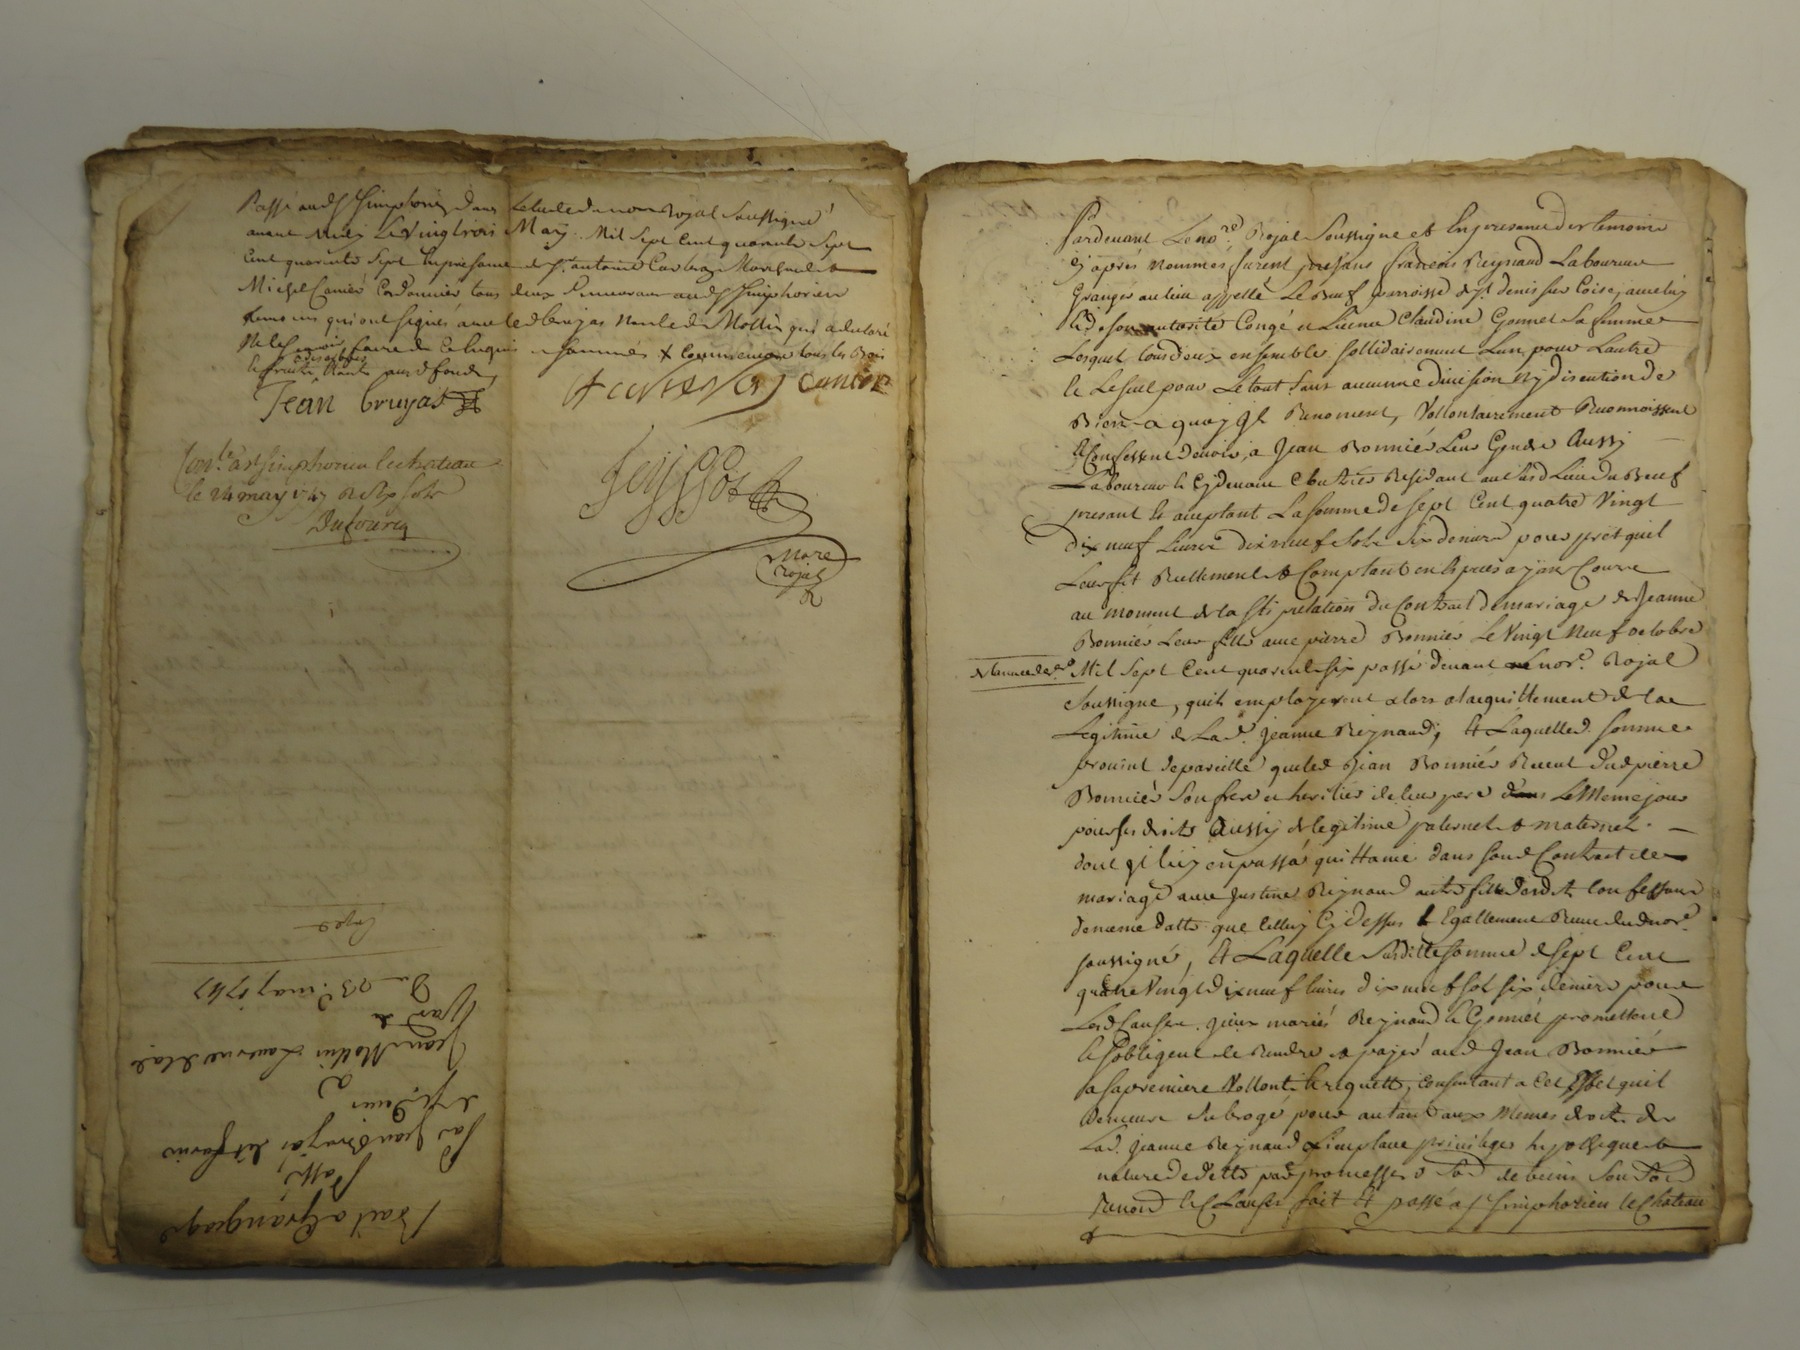 Passé aud St Simphorien dans Letude du no.re Royal Soussigné
avant midy Le vingt trois May Mil Sept Cent quarante Sept
Cent quarante Sept En presence de Sr. antoine Marechal &
Michel Canier Cordonnier tous deux demeurant aud St Simphorien
temoins qui ont signés avec led bruyas non led Mollin qui a declaré
Ne le sçavoir faire de ce Enquis et sommés
Jean bruyas
canier
Con.lé a St Simphorien le chateau
le 24 may 1747
Dufourcq
Peyssot
No.re
Royal
Bail a Grangeage
Passé
Par Jean Bruyas dit
a
Jean Mollin Laboureur de la
Du 23e. may 1747
Pardevant Le no.re Royal Soussigné et En presance des temoins
Cy apres Nommés furent presans françois Reynaud Laboureur
Granger au lieu appellé Le Bœuf parroisse de St. denis sur Coise, avec luy
& de son autorité Congé et Licence Claudine Gonnet Sa femme
Lesquels tous deux ensemble sollidairement L'un pour L'autre
& Le Seul pour Le tout Sans aucunne division Ny discution de
Biens a quoy Ils Renoncent, Vollontairement Reconnoissent
& Confessent devoir, a Jean Bonnier Leur Gendre Aussy
Laboureur Residant aud Lieu du Bœuf
presant & aceptant La somme de sept Cent quatre Vingt
dix neuf Livres dix neuf Sols Six deniers pour prêt quil
Leur fit Reellement & Comptant en Especes ayans Cours
au moment de la Stipulation du Contrat de mariage de Jeanne
Bonnier avec pierre Bonnier Le Vingt Neuf octobre
de l'année der.e Mil Sept Cent quarente six passé devant Le nore. Royal
Soussigné, quils employerent alors a laquittement de la
Legitime de La d. Jeanne Reynaud, Et Laquelle d. somme
provint de pareille que led Jean Bonnier Receut dud pierre
Bonnier Son frere et heritier de leur pere Le Meme jour
pour ses droits Aussy de legitime paternel & maternel
dont Il luy en passa quittance dans son d Contract de
mariage avec Justine Reynaud
de meme datte que Celluy Cy dessus & Egallement Receu dud no.re
soussigné, Et Laquelle Sus ditte somme de sept Cent
quatre Vingt dix neuf livres dix neuf sols six deniers pour
Les d Causes. Iceux mariés Reynaud & Gonnet promettent
& sobligent de Rendre & payer aud Jean Bonnier
a sa premiere Vollonté & requette, consentant a Cet Effet quil
demeure Subrogé pour autant aux Memes droits de
La d. Jeanne Reynaud & en place privileges hypotheque &
nature de dette par promesses
Renon & Clauses fait Et passé a St Simphorien le Chateau